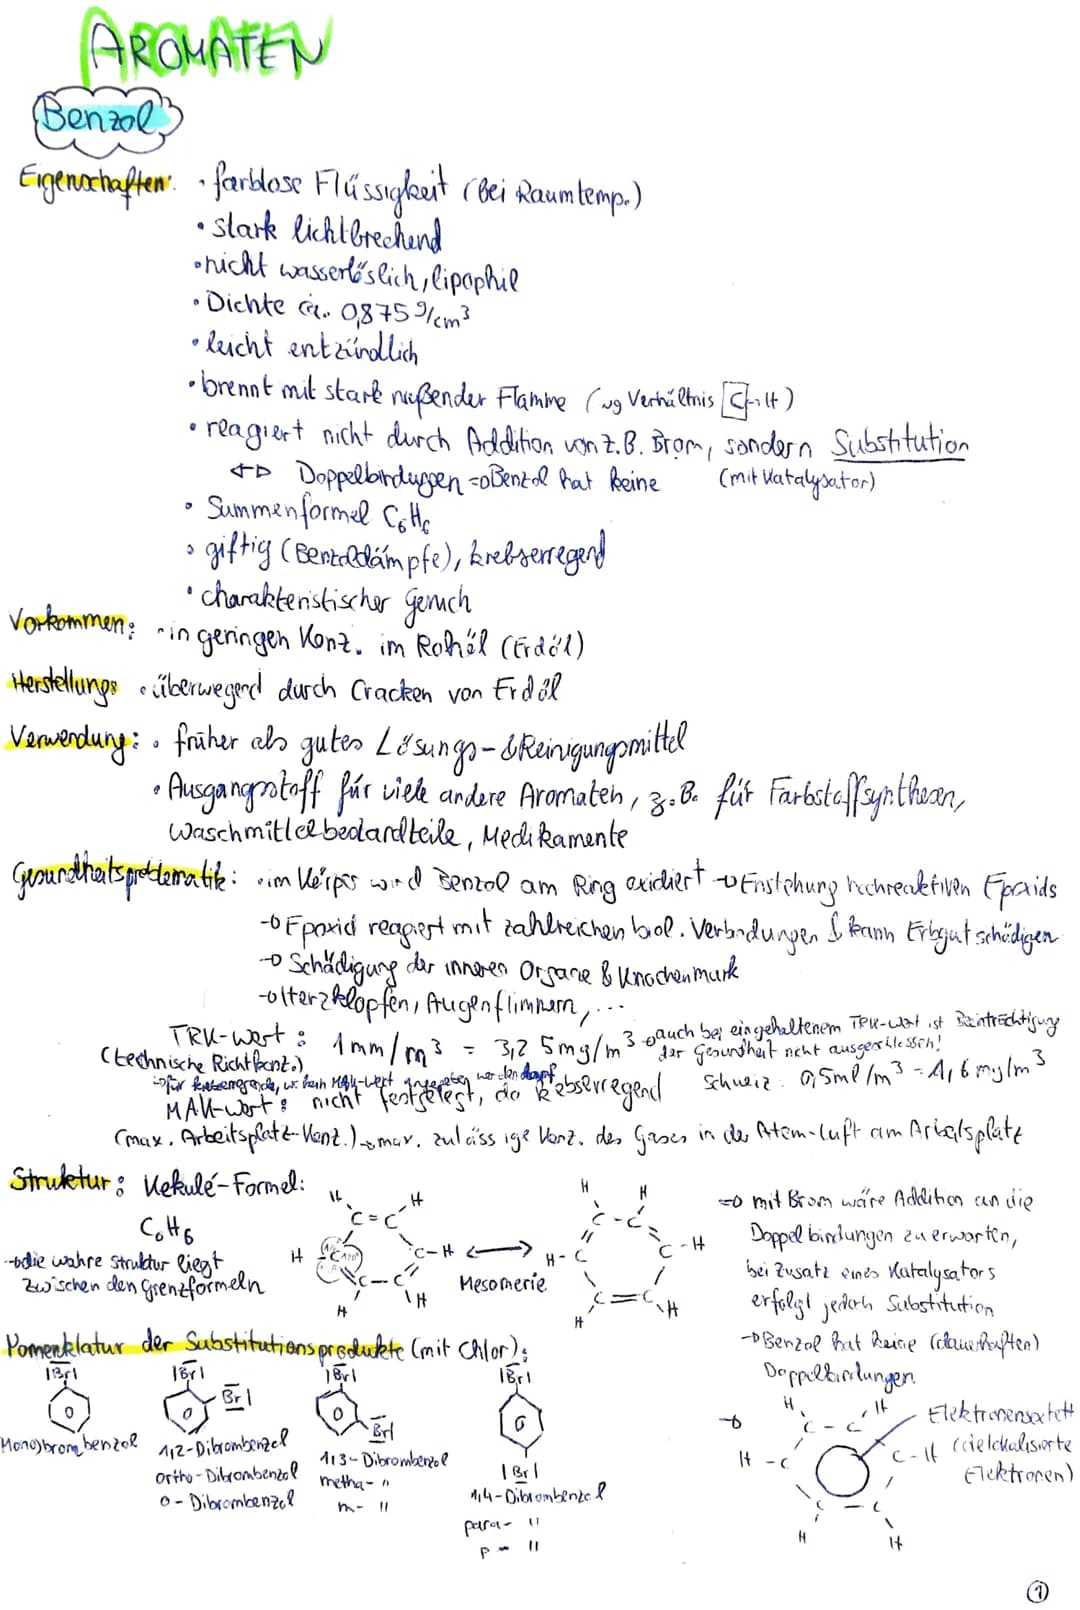 AROMATEN
Benzol
Eigenschaften: • farblose Flüssigkeit (bei Raumtemp.)
• stark lichtbrechend
• nicht wasserlöslich, lipophil
• Dichte ca. 0,875 g/cm³
• leicht entzündlich
• brennt mit stark rußender Flamme (wg Verhältnis C-H)
• reagiert nicht durch Addition von z.B. Brom, sondern Substitution
Doppelbindungen => Benzol hat keine (mit Katalysator)
• Summenformel C₆H₆
• giftig (Benzoldämpfe), krebserregend
• charakteristischer Geruch
Vorkommen: • in geringen Konz. im Rohöl (Erdöl)
Herstellung: • überwegend durch Cracken von Erdöl
Verwendung: • früher als gutes Lösungs- & Reinigungsmittel
• Ausgangsstoff für viele andere Aromaten, z.B. für Farbstoffsynthesen,
Waschmittelbestandteile, Medikamente
Gesundheitsproblematik: • im Körper wird Benzol am Ring oxidiert → Enstehung hochreaktiven Epoxids
→ Epoxid reagiert mit zahlreichen biol. Verbindungen & kann Erbgut schädigen
→ Schädigung der inneren Organe & Knochenmark
→ Herzklopfen, Augenflimmern, ...
TRK-Wert: 1mm/m³ = 3,25mg/m³ → auch bei eingehaltenem TRK-Wert ist Beinträchtigung
(technische Richtkonz.) der Gesundheit nicht ausgeschlossen!
→ für krebserregende, wo kein MAK-Wert angegeben werden darf Schweiz: 0,5ml/m³ = 1,6 mg/m³
MAK-Wert: nicht festgelegt, da krebserregend
(max. Arbeitsplatz-Konz.) → max. zulässige Konz. des Gases in der Atem-Luft am Arbeitsplatz
Struktur: Kekulé-Formel:
C₆H₆
→ die wahre Struktur liegt
zwischen den Grenzformeln
H H
C=C
H C C-H
C-C
H H
Mesomerie
H H
C-C
H-C C-H
C=C
H H
=> mit Brom wäre Addition an die
Doppelbindungen zu erwarten,
bei Zusatz eines Katalysators
erfolgt jedoch Substitution
→ Benzol hat keine (dauerhaften)
Doppelbindungen
Nomenklatur der Substitutionsprodukte (mit Chlor):
|Br|
Mono)brombenzol
|Br|
Br|
1,2-Dibrombenzol
ortho-Dibrombenzol
o-Dibrombenzol
|Br|
Br|
1,3-Dibrombenzol
metha- "
m- "
|Br|
|Br|
1,4-Dibrombenzol
para- "
p- "
H H
C-C
H-C C-H
C-C
H H
Elektronensextett
(delokalisierte
Elektronen)
1